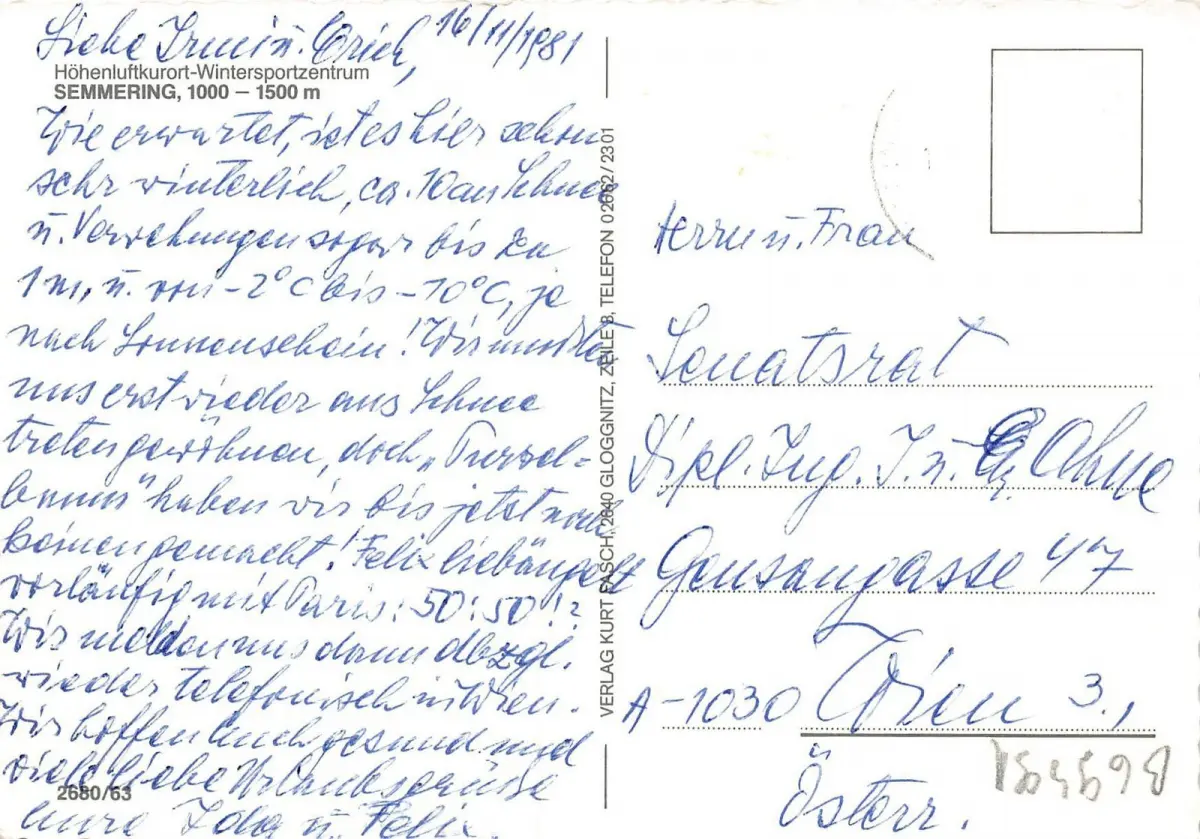 Liebe Irmi u. Erich, 16/11/1981
Höhenluftkurort-Wintersportzentrum
SEMMERING, 1000 – 1500 m
Wie erwartet, ist es hier schon
sehr winterlich, ca. 10 cm Schnee
u. Verwehungen sogar bis zu
1 m, u. von -2°C bis -10°C, je
nach Sonnenschein! Wir mussten
uns erst wieder ans Schnee
treten gewöhnen, doch „Purzel-
baum" haben wir bis jetzt noch
keinen gemacht! Felix liebäugelt
vorläufig mit Paris: 50:50!?
Wir melden uns dann dbzgl.
wieder telefonisch in Wien.
Wir hoffen Euch gesund und
viele liebe Urlaubsgrüsse
2680/63
Eure Ida u. Felix.
VERLAG KURT PASCH, 2640 GLOGGNITZ, ZEILE 8, TELEFON 02662/2301
Herrn u. Frau
Senatsrat
Dipl. Ing. I. u. E. Ohne
Geusaugasse 47
A-1030 Wien 3.,
Österr.